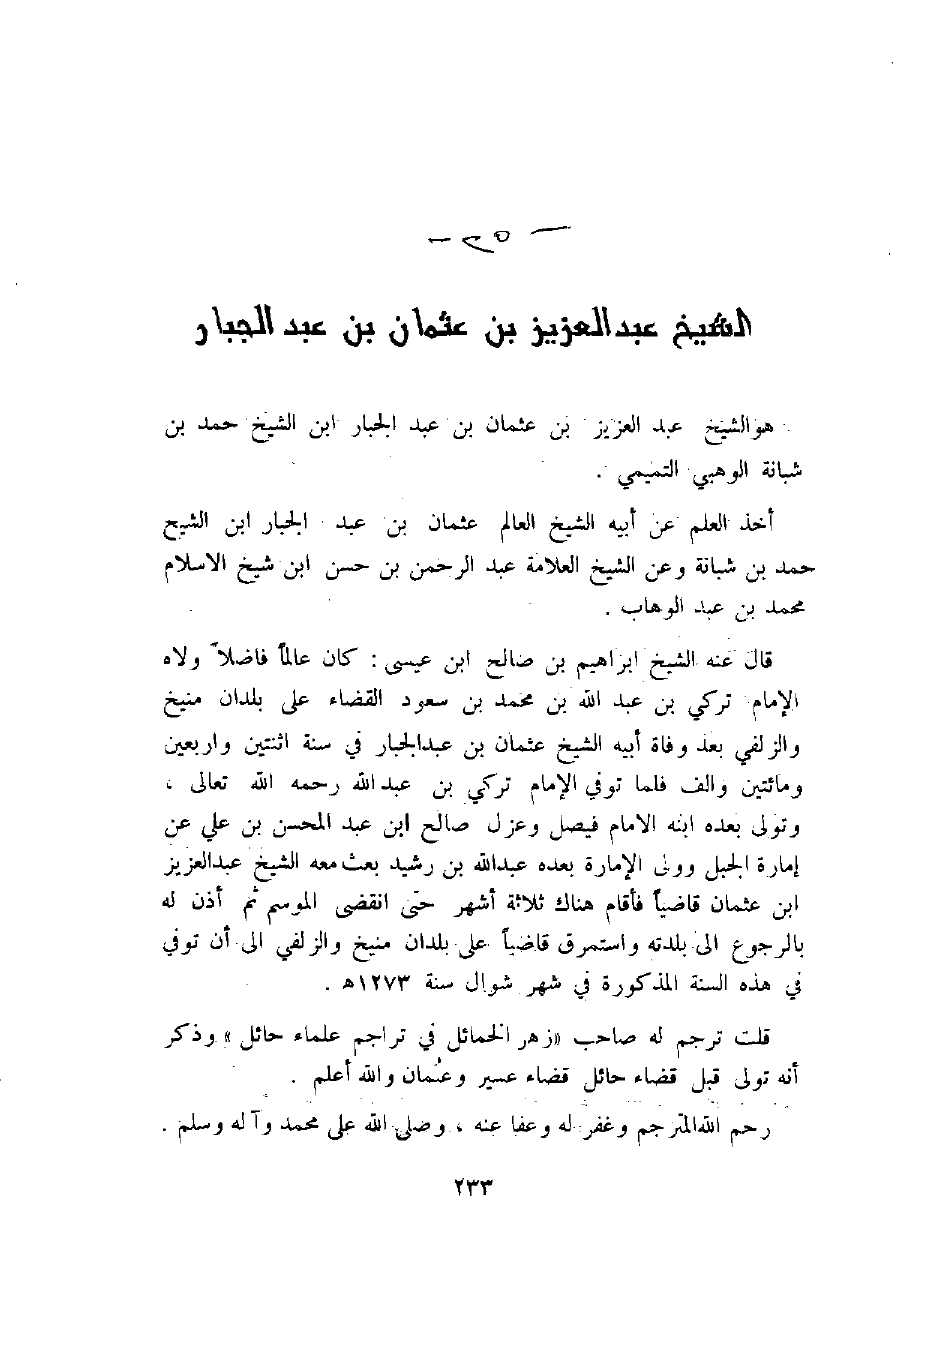 الشيخ عبدالعزيز بن عثمان بن عبد الجبار
هو الشيخ عبد العزيز بن عثمان بن عبد الجبار ابن الشيخ حمد بن
شبانة الوهبي التميمي .
أخذ العلم عن أبيه الشيخ العالم عثمان بن عبد الجبار ابن الشيخ
حمد بن شبانة وعن الشيخ العلامة عبد الرحمن بن حسن ابن شيخ الاسلام
محمد بن عبد الوهاب .
قال عنه الشيخ ابراهيم بن صالح ابن عيسى : كان عالماً فاضلاً ولاه
الإمام تركي بن عبد الله بن محمد بن سعود القضاء على بلدان منيخ
والزلفي بعد وفاة أبيه الشيخ عثمان بن عبدالجبار في سنة اثنتين واربعين
ومائتين والف فلما توفي الإمام تركي بن عبدالله رحمه الله تعالى ،
وتولى بعده ابنه الامام فيصل وعزل صالح ابن عبد المحسن بن علي عن
إمارة الجبل وولى الإمارة بعده عبدالله بن رشيد بعث معه الشيخ عبدالعزيز
ابن عثمان قاضياً فأقام هناك ثلاثة أشهر حتى انقضى الموسم ثم أذن له
بالرجوع الى بلدته واستمرق قاضياً على بلدان منيخ والزلفي الى أن توفي
في هذه السنة المذكورة في شهر شوال سنة ١٢٧٣ه .
قلت ترجم له صاحب «زهر الخمائل في تراجم علماء حائل» وذكر
أنه تولى قبل قضاء حائل قضاء عسير وعثمان والله أعلم .
رحم الله المترجم وغفر له وعفا عنه ، وصلى الله على محمد وآله وسلم .
٢٣٣